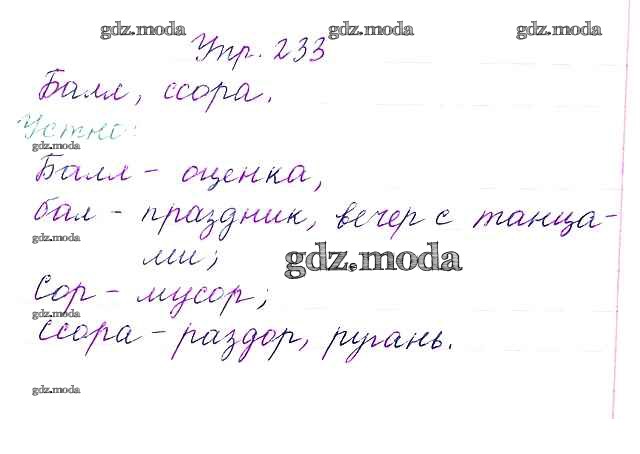 gdz.moda gdz.moda gdz.moda
Упр. 233
Балл, ссора.
Устно:
gdz.moda
Балл - оценка,
gdz.moda
бал - праздник, вечер с танца-
gdz.moda
ми; gdz.moda
Сор - мусор;
gdz.moda
ссора - раздор, ругань.
gdz.moda